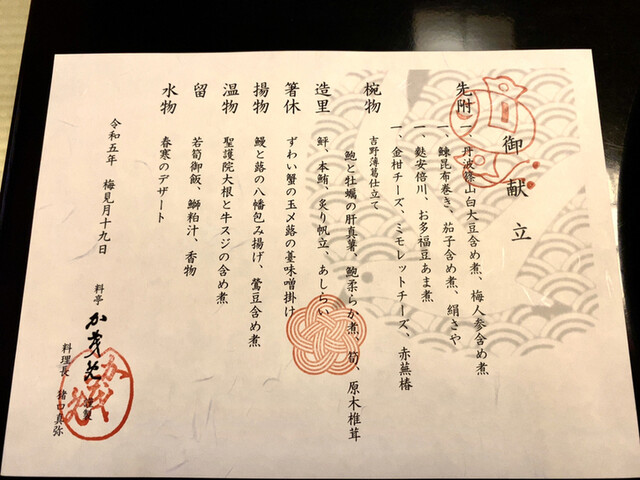 御献立
先附 一、丹波篠山白大豆含め煮、梅人参含め煮
一、鰊昆布巻き、茄子含め煮、絹さや
一、麩安倍川、お多福豆あま煮
一、金柑チーズ、ミモレットチーズ、赤蕪椿
椀物 吉野薄葛仕立て
鮑と牡蠣の肝真薯、鮑柔らか煮、筍、原木椎茸
造里 鮃、本鮪、炙り帆立、あしらい
箸休 ずわい蟹の玉〆蕗の薹味噌掛け
揚物 鰻と蕗の八幡包み揚げ、鶯豆含め煮
温物 聖護院大根と牛スジの含め煮
留 若筍御飯、鰤粕汁、香物
水物 春寒のデザート
令和五年 梅見月十九日
料亭
謹製
料理長 猪口真弥